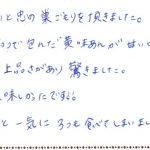 いと忠の巣ごもりを頂きました。
つで包んだ黄味あんがはい
上品さがあり驚きました。
味しかったですよ。
と一気に3つも食べてしまいまし